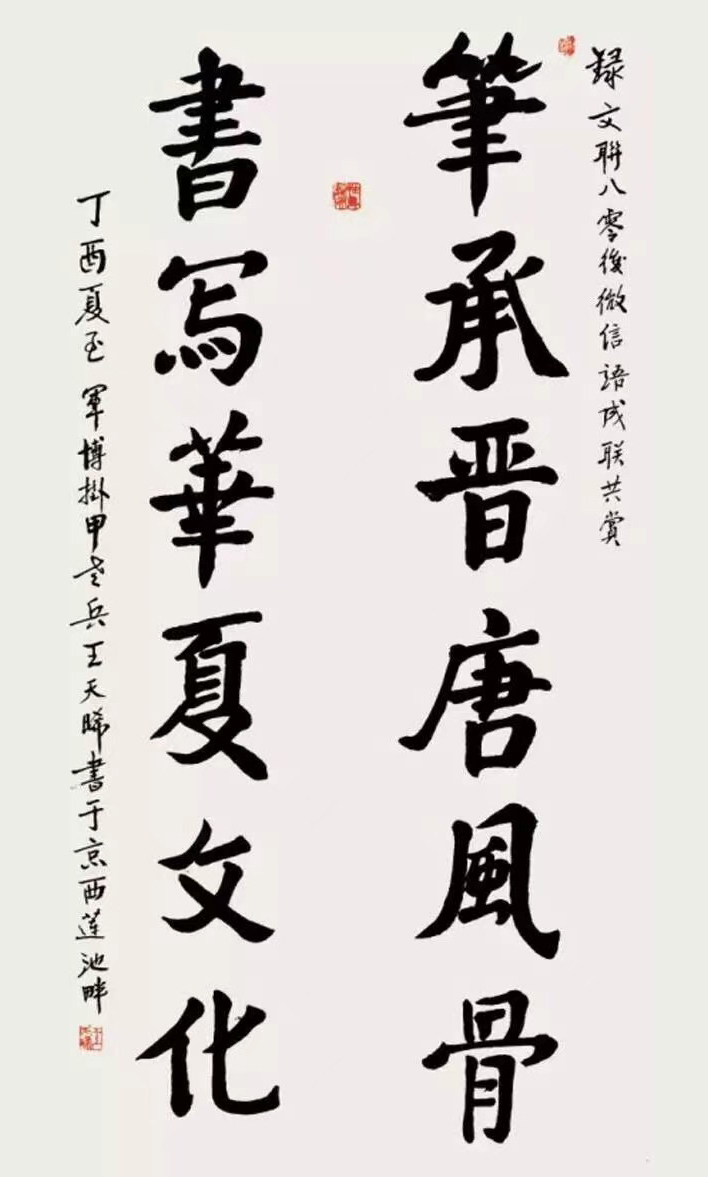 録文聯八零後微信語成联共賞
筆承晋唐風骨
書写華夏文化
丁酉夏至軍博掛甲老兵王天晞書于京西蓮池畔